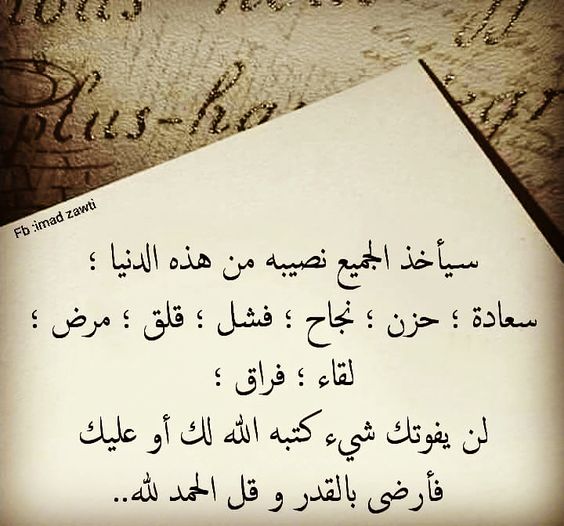 Plus-ha
Fb :imad zawti
سيأخذ الجميع نصيبه من هذه الدنيا ؛
سعادة ؛ حزن ؛ نجاح ؛ فشل ؛ قلق ؛ مرض ؛
لقاء ؛ فراق ؛
لن يفوتك شيء كتبه الله لك أو عليك
فأرضى بالقدر و قل الحمد لله..